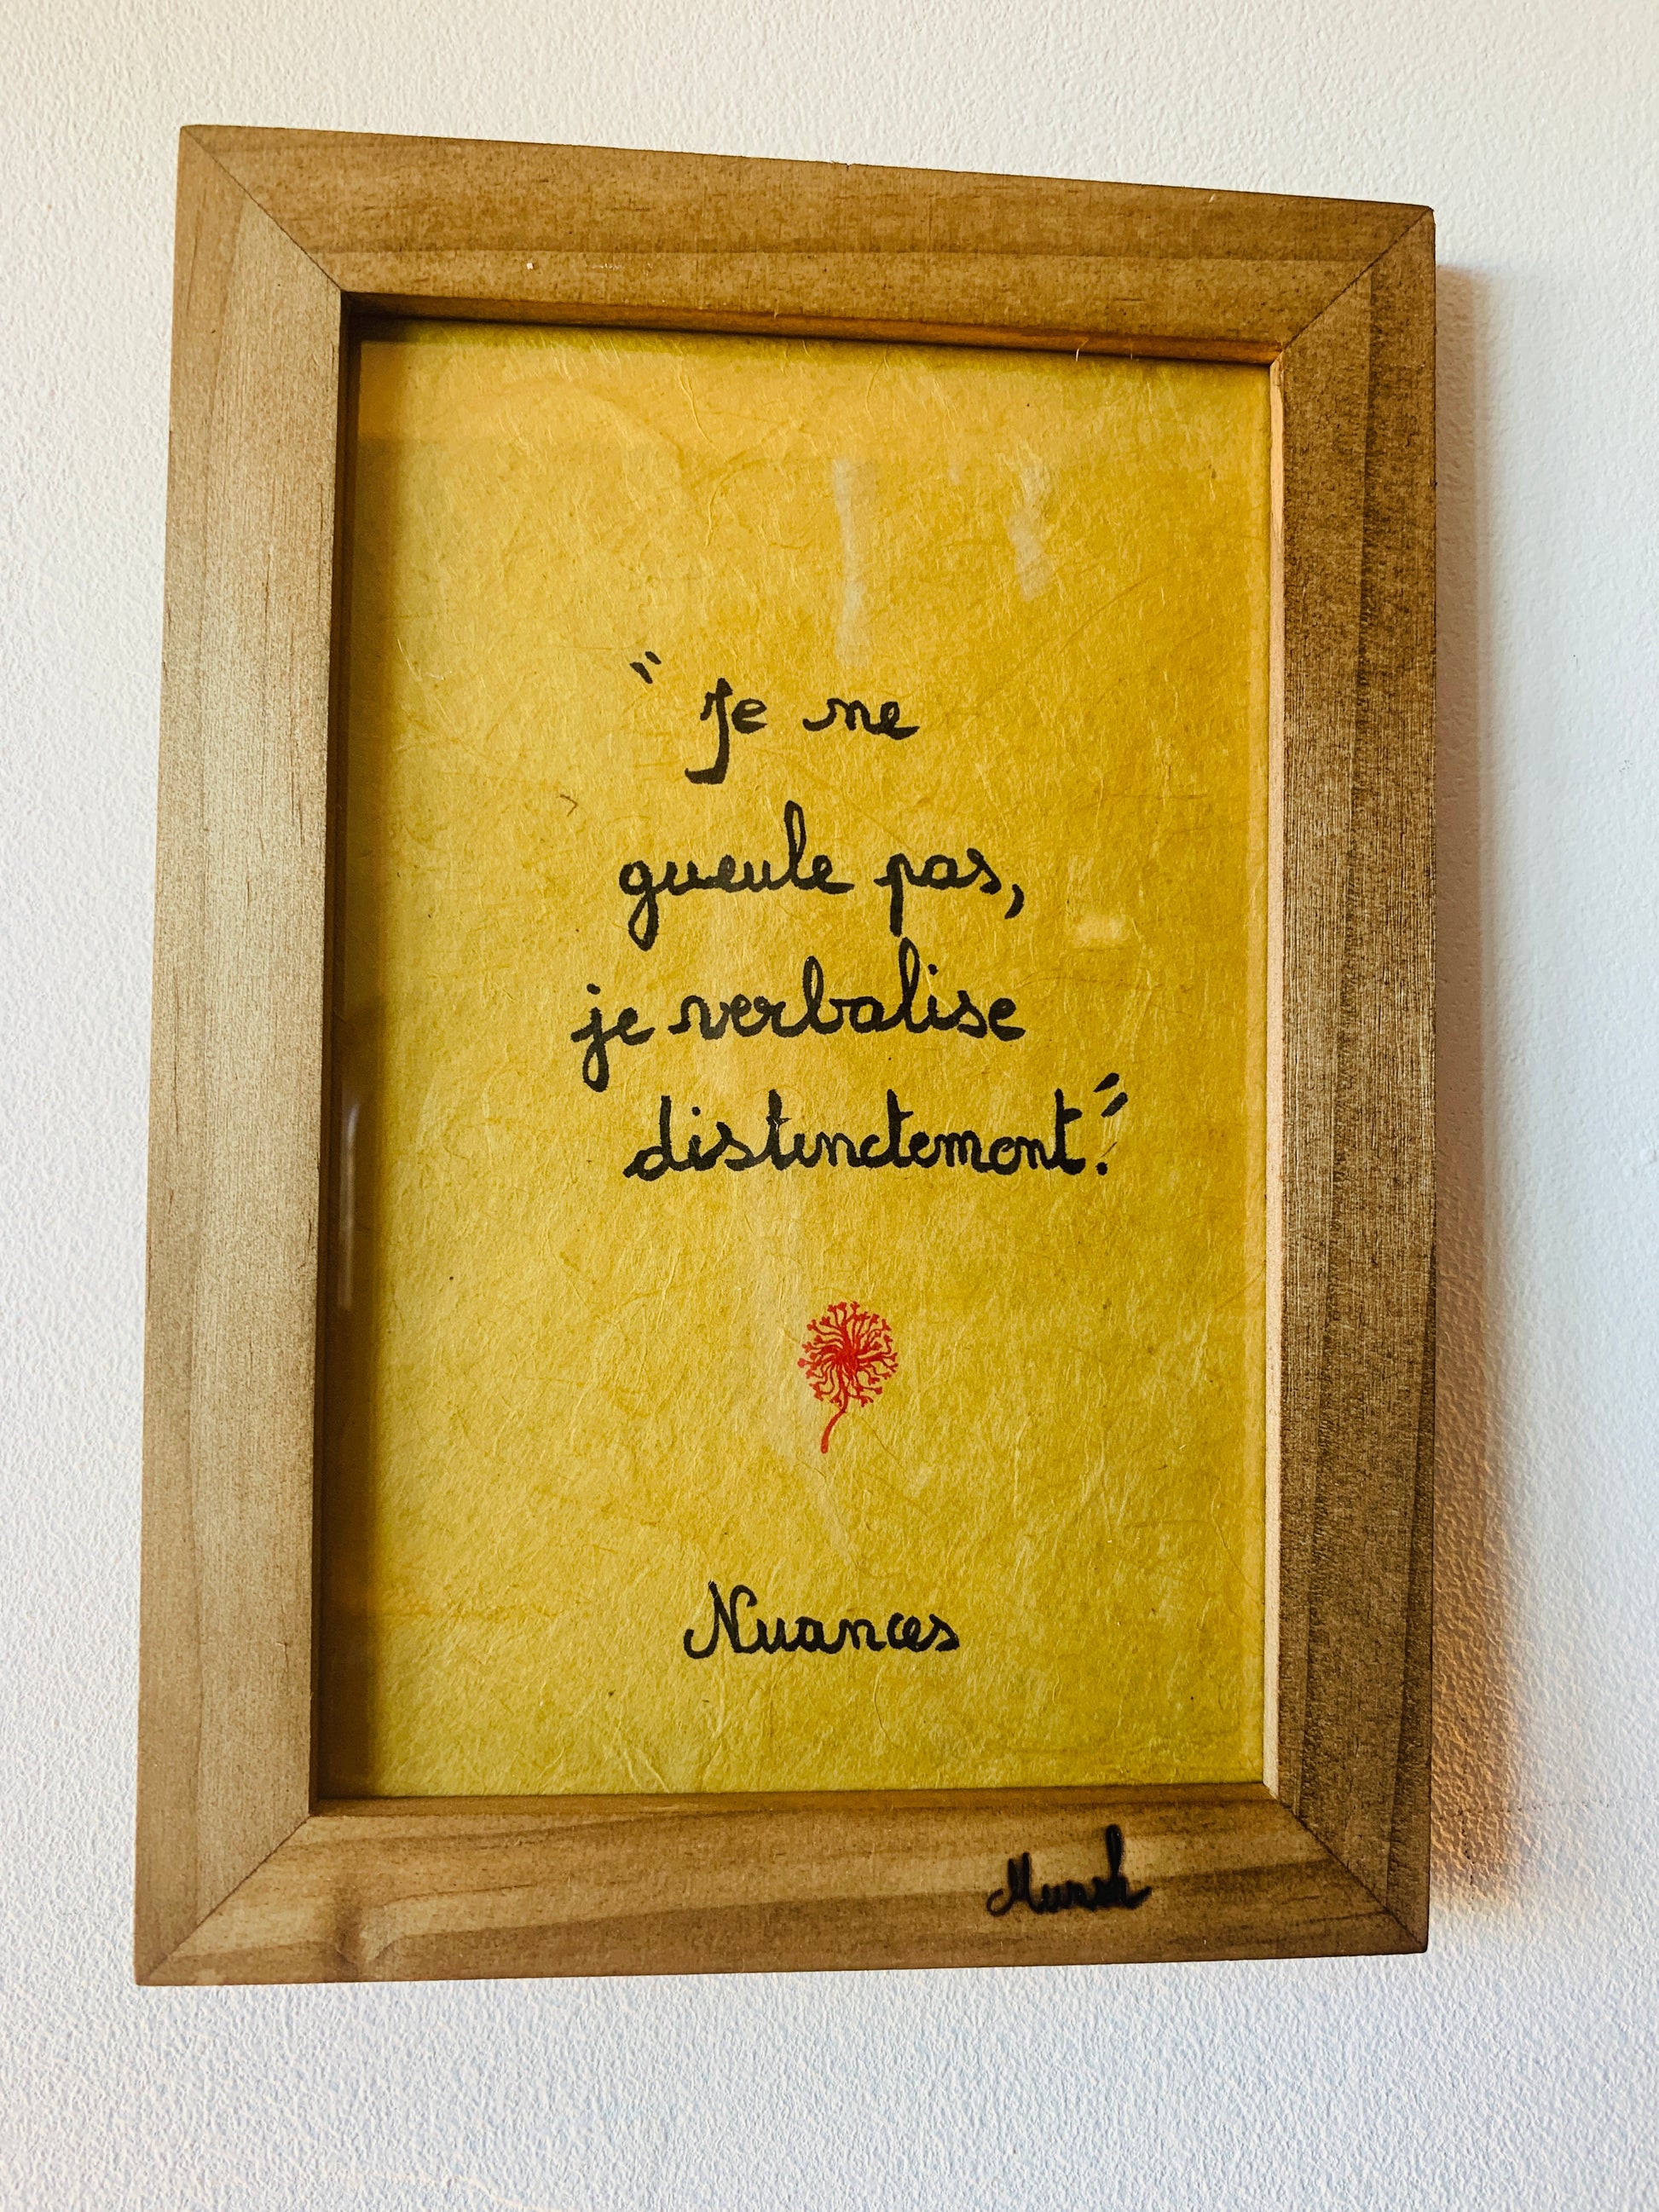 "Je ne
gueule pas,
je verbalise
distinctement."
Nuances